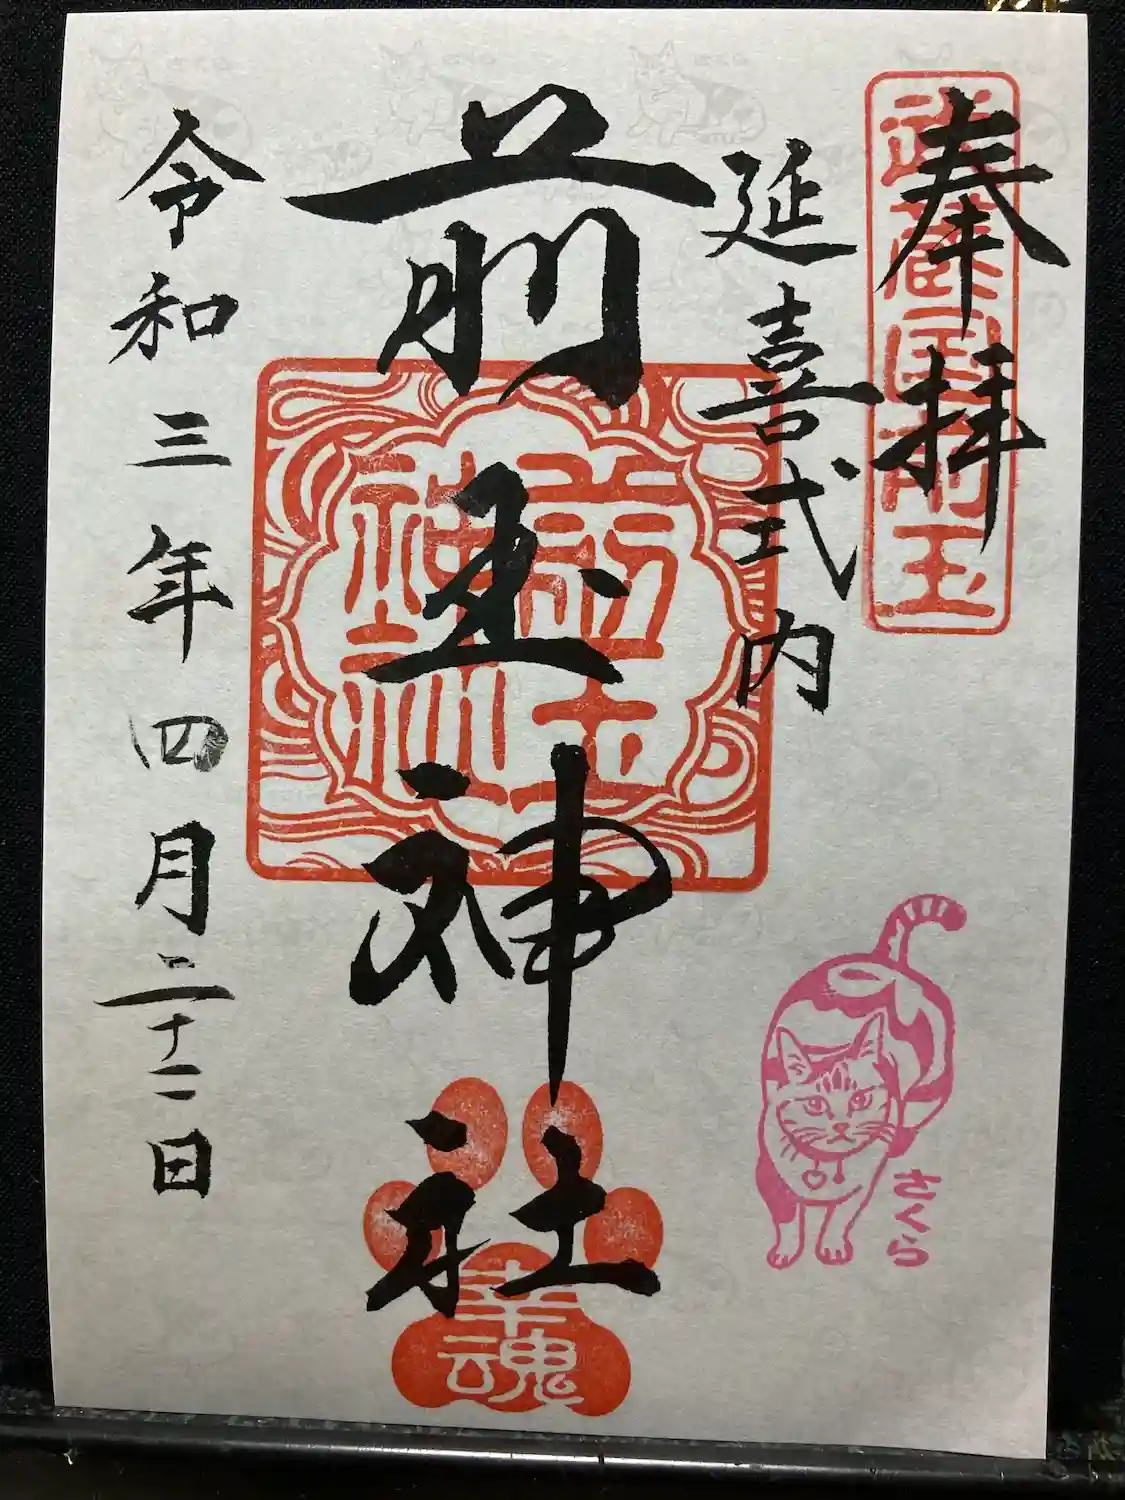 奉拝
武蔵国前玉
延喜式内
前玉神社
前玉
神社
幸魂
さくら
令和三年四月二十二日